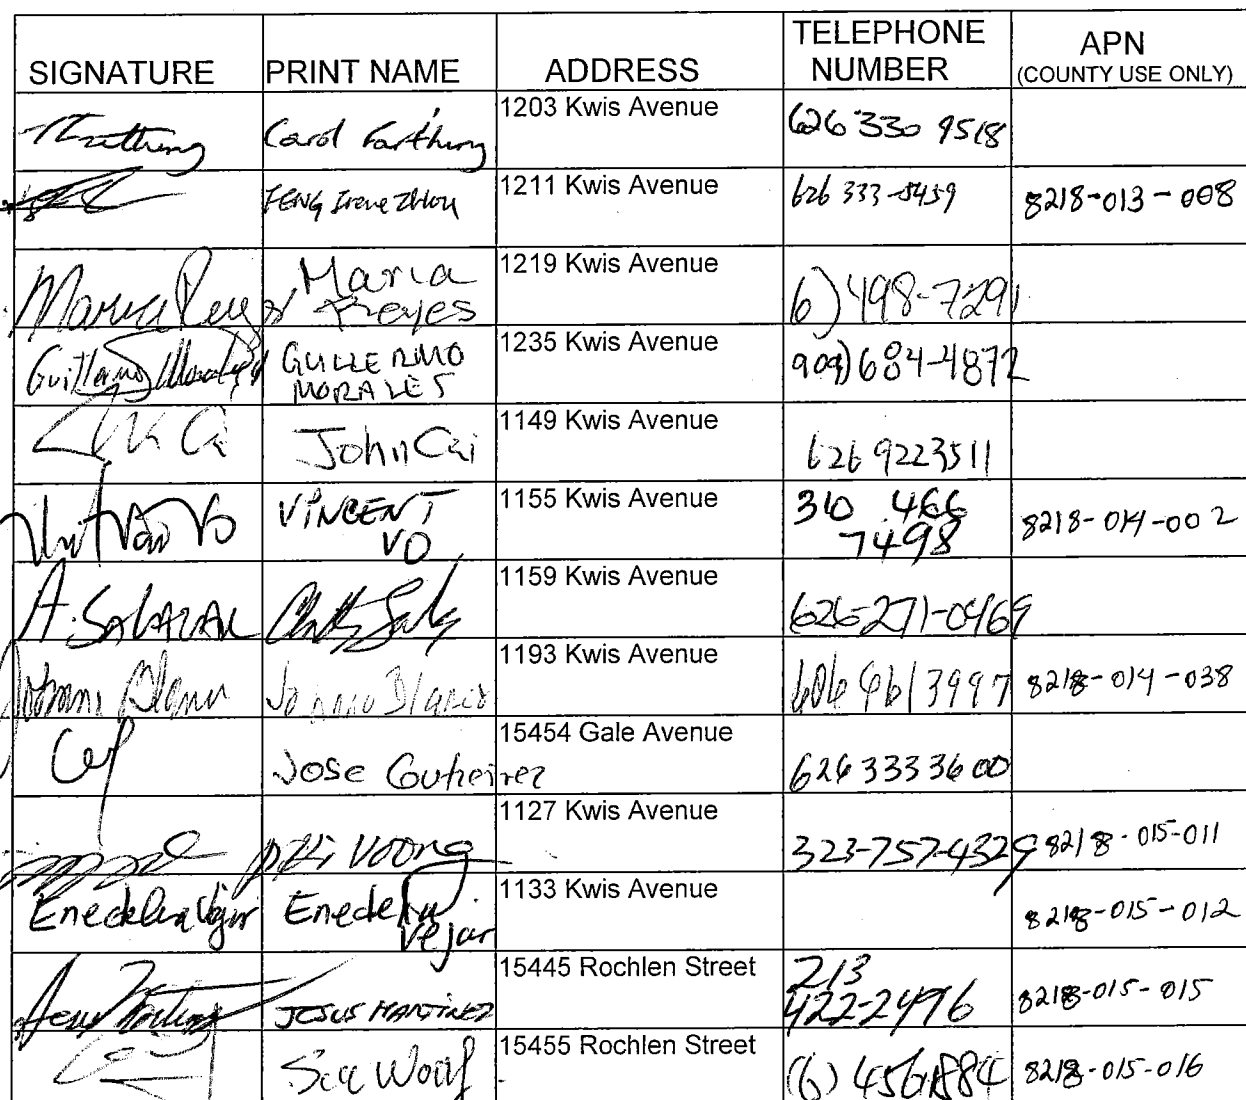 SIGNATURE PRINT NAME ADDRESS TELEPHONE NUMBER APN (COUNTY USE ONLY)
Carol Farthing 1203 Kwis Avenue 626 330 9518
FENG Irene Zhou 1211 Kwis Avenue 626 333-5459 8218-013-008
Maria Reyes Maria Reyes 1219 Kwis Avenue 6) 498-7291
Guillermo Morales GUILLERMO MORALES 1235 Kwis Avenue 909) 684-4872
John Cai 1149 Kwis Avenue 626 9223511
VINCENT VO 1155 Kwis Avenue 310 466 7498 8218-014-002
A. SALAZAR 1159 Kwis Avenue 626-271-0469
Blanco 1193 Kwis Avenue 8218-014-038
Jose Gutierrez 15454 Gale Avenue 626 3333600
Voong 1127 Kwis Avenue 323-757-4329 8218-015-011
Enedelia Vejar Enedelia Vejar 1133 Kwis Avenue 8218-015-012
Jesus Martinez JESUS MARTINEZ 15445 Rochlen Street 213 422-2496 8218-015-015
15455 Rochlen Street (6) 4561884 8218-015-016